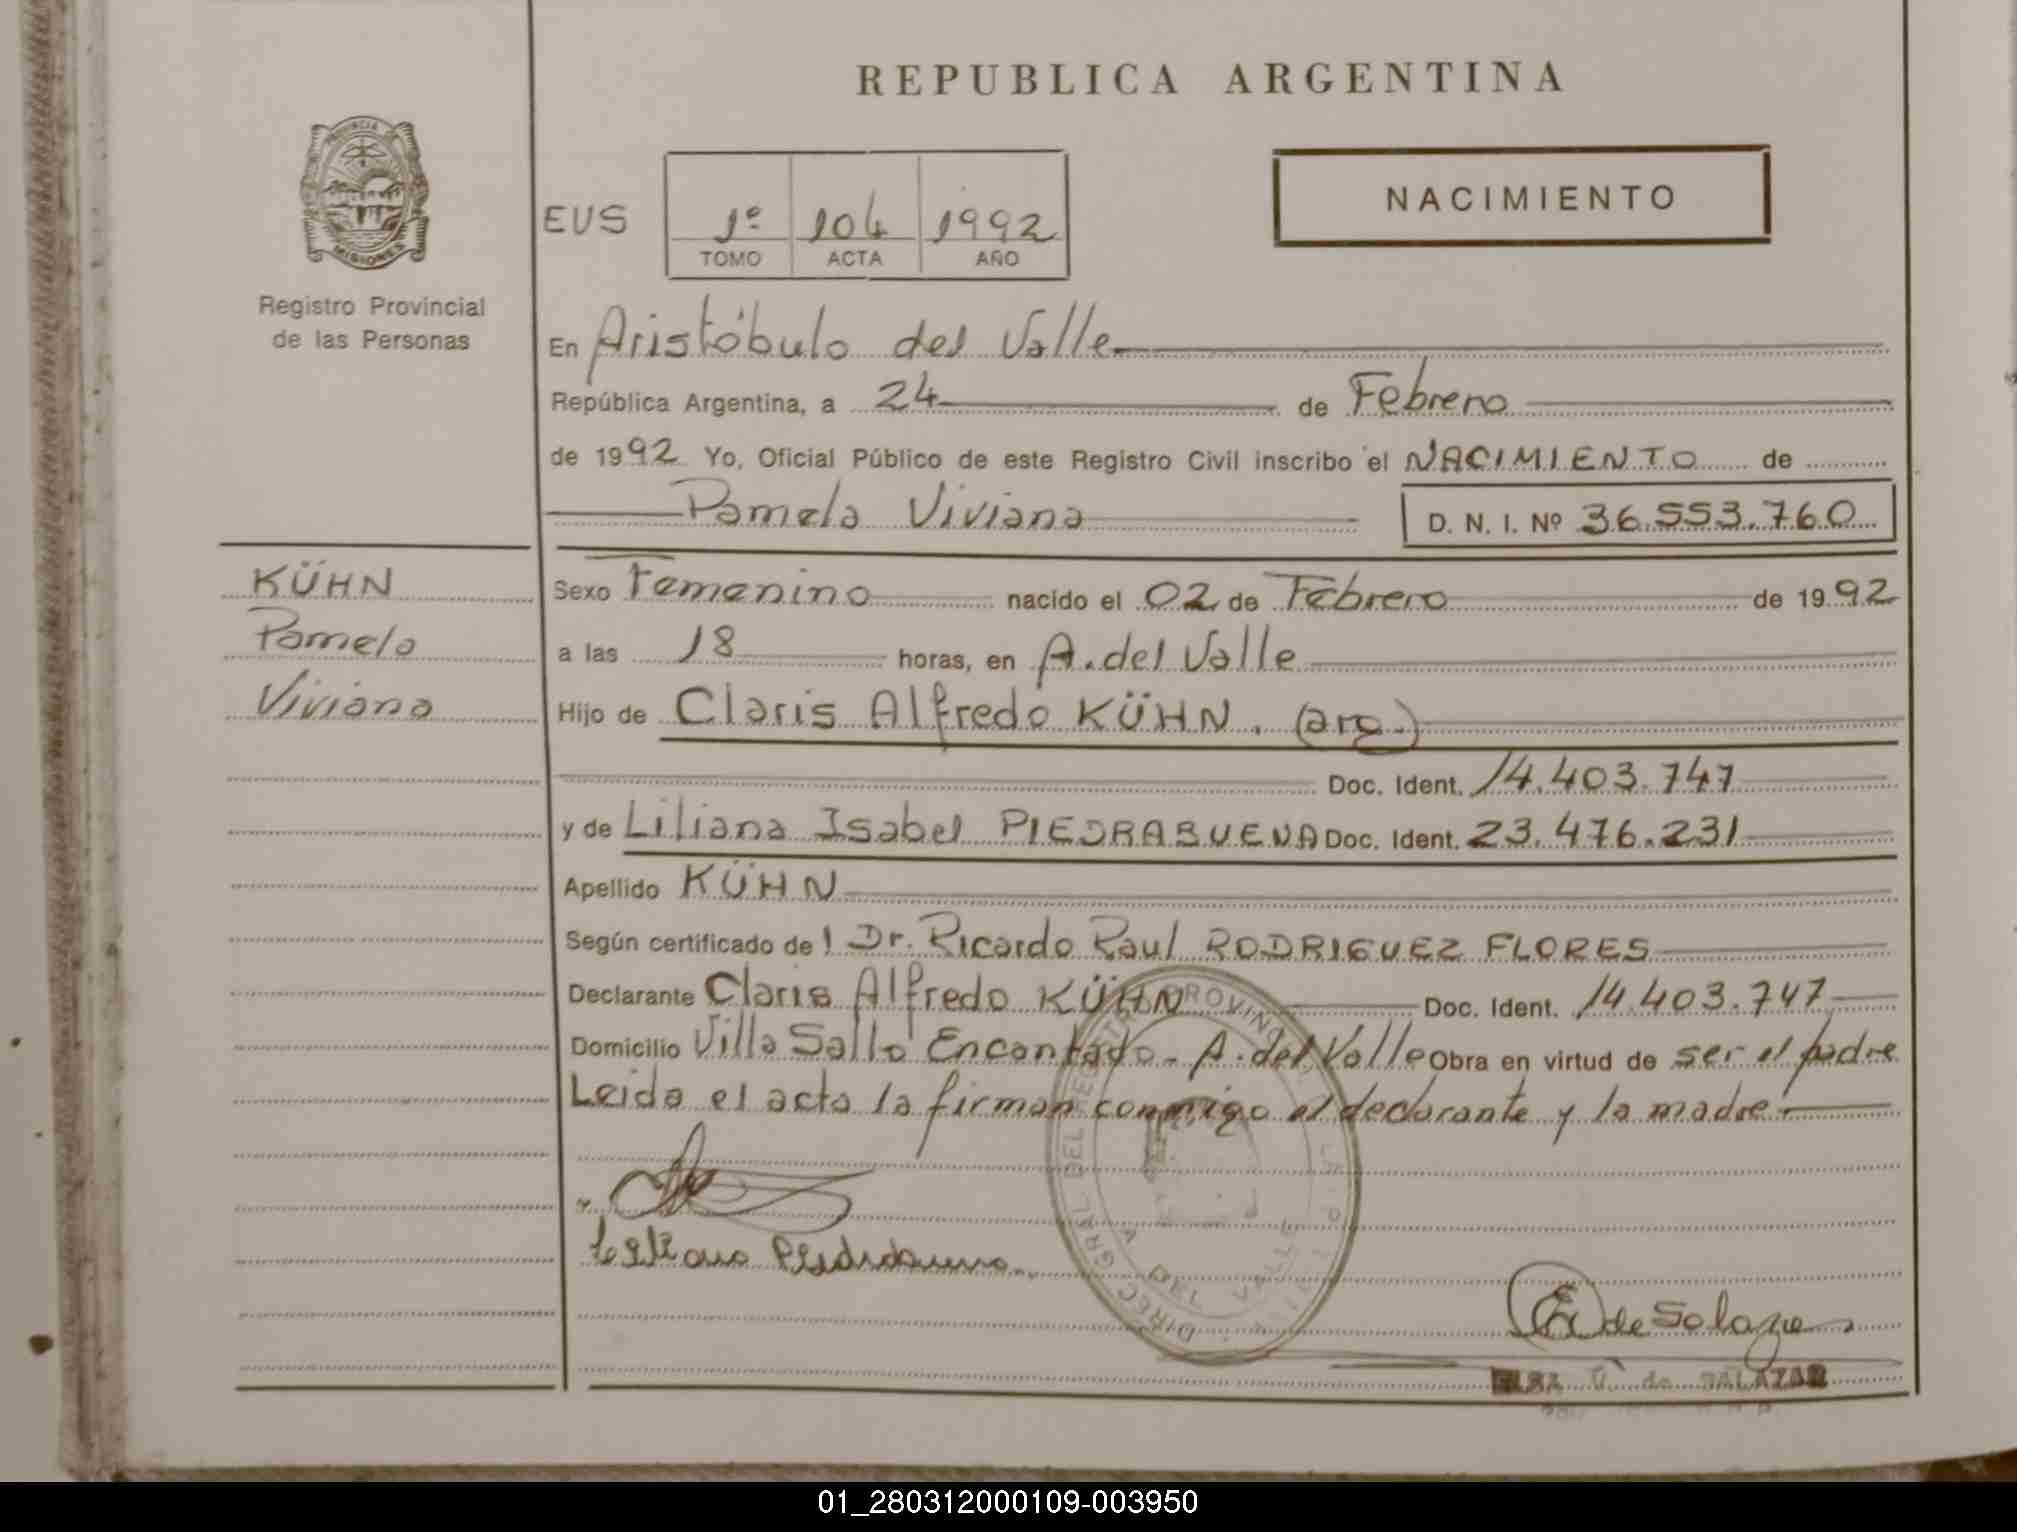 REPUBLICA ARGENTINA
PROVINCIA DE
MISIONES
Registro Provincial
de las Personas
NACIMIENTO
EUS
1º 104 1992
TOMO ACTA AÑO
En Aristóbulo del Valle
República Argentina, a 24 de Febrero
de 1992 Yo, Oficial Público de este Registro Civil inscribo el NACIMIENTO de
Pamela Viviana D. N. I. Nº 36.553.760
KÜHN
Pamela
Viviana
Sexo Femenino nacido el 02 de Febrero de 1992
a las 18 horas, en A. del Valle
Hijo de Claris Alfredo KÜHN. (arg.)
Doc. Ident. 14.403.747
y de Liliana Isabel PIEDRABUENA Doc. Ident. 23.476.231
Apellido KÜHN
Según certificado del Dr. Ricardo Raul RODRIGUEZ FLORES
Declarante Claris Alfredo KÜHN Doc. Ident. 14.403.747
Domicilio Villa Salto Encantado - A. del Valle Obra en virtud de ser el padre
Leida el acta la firman conmigo el declarante y la madre
DIREC. GRAL. DEL REGISTRO PROVINCIAL
VALLE
E de Salazar
de SALAZAR
01_280312000109-003950